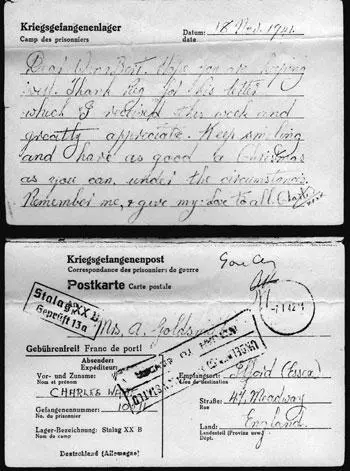 Kriegsgefangenenlager
Camp des prisonniers
Datum:
date
18 Nov. 1941.
hope you are keeping
well. Thank Reg for his letter
which I received this week and
greatly appreciate. Keep smiling
and have as good a Christmas
as you can, under the circumstances.
Remember me, & give my love to all.
Kriegsgefangenenpost
Correspondance des prisonniers de guerre
Postkarte Carte postale
Stalag XX B
Geprüft 13a
Mrs. A.
Gebührenfrei! Franc de port!
Absender:
Expéditeur:
Vor- und Zuname:
Nom et prénom
CHARLES
Gefangenennummer:
No. du prisonnier
Lager-Bezeichnung: Stalag XX B
Nom du camp
Deutschland (Allemagne)
Empfangsort: Ilford (Essex)
Lieu de destination
Straße: 47, Meadway
Rue
Land: England.
Landesteil (Provinz usw.)
Dépt.